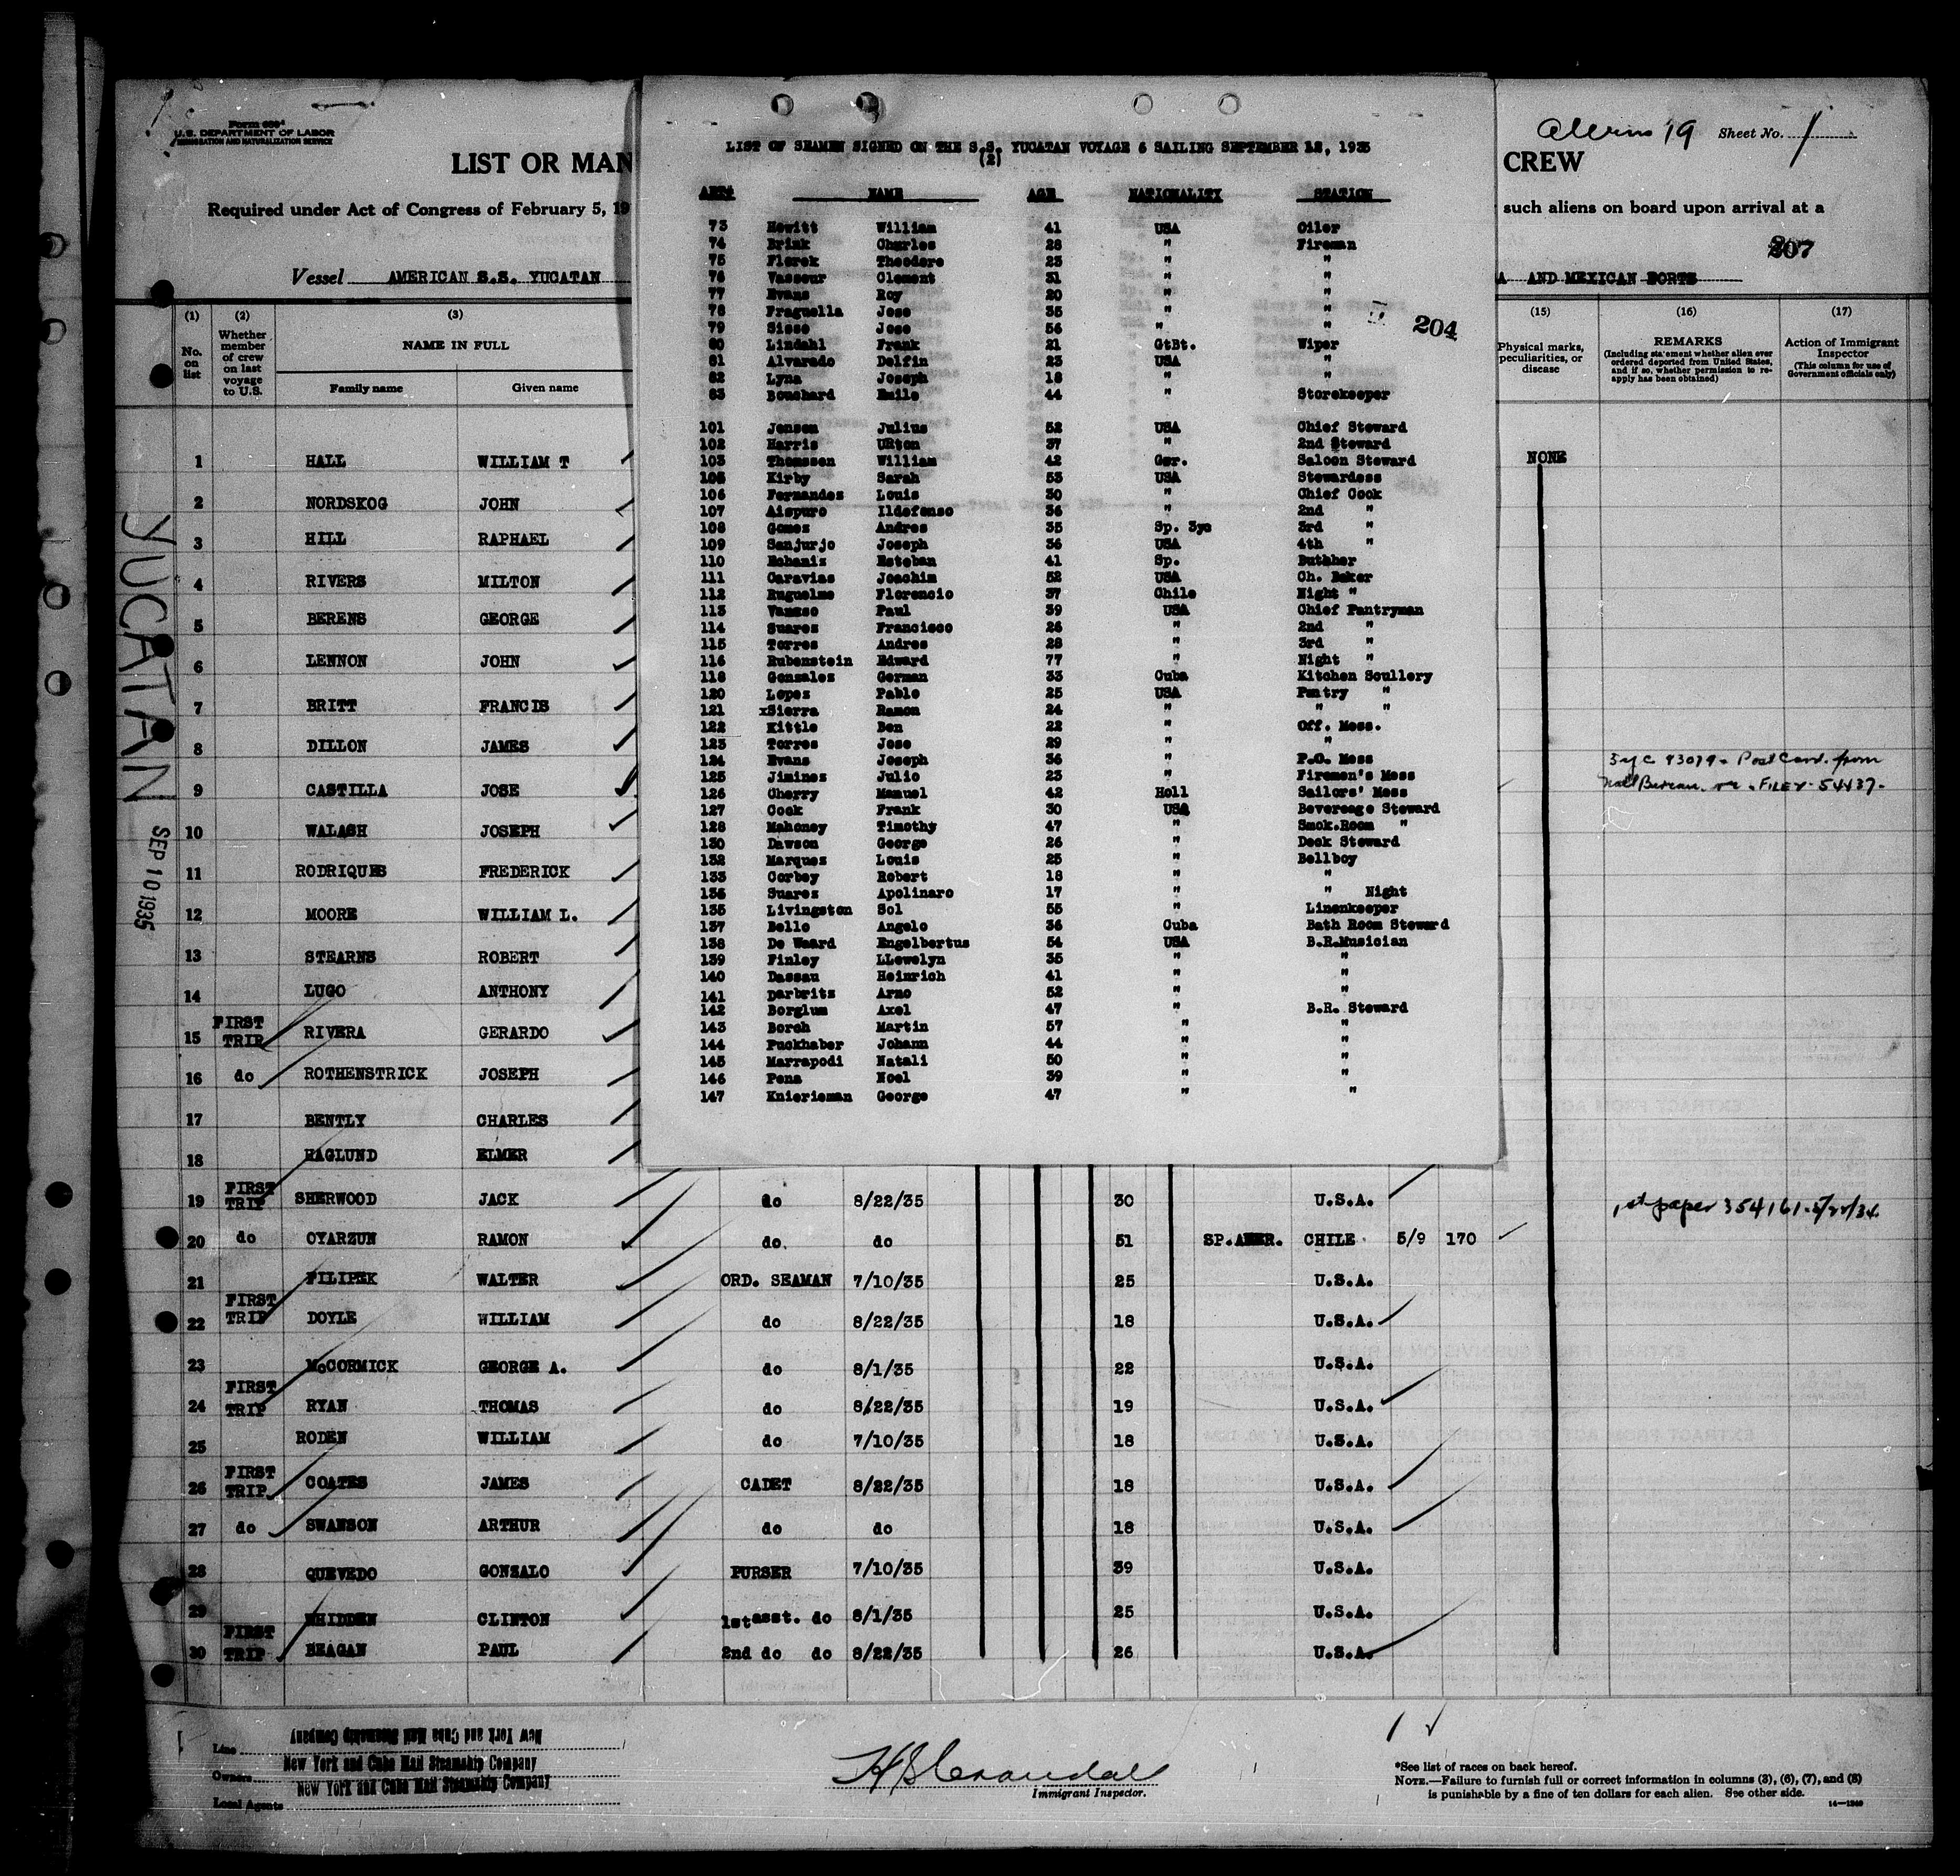 Form 689
U.S. DEPARTMENT OF LABOR
IMMIGRATION AND NATURALIZATION SERVICE
LIST OR MAN
Required under Act of Congress of February 5, 19
Vessel AMERICAN S.S. YUCATAN
(1) (2) (3)
No. on list
Whether member of crew on last voyage to U.S.
NAME IN FULL
Family name Given name
Sheet No. 1
CREW
such aliens on board upon arrival at a
207
A AND MEXICAN PORTS
(15) (16) (17)
Physical marks, peculiarities, or disease
REMARKS
(Including statement whether alien ever ordered deported from United States, and if so, whether permission to reapply has been obtained)
Action of Immigrant Inspector
(This column for use of Government officials only)
LIST OF SEAMEN SIGNED ON THE S.S. YUCATAN VOYAGE 6 SAILING SEPTEMBER 12, 1935
(2)
ART# NAME AGE NATIONALITY STATION
73 Hewitt William 41 USA Oiler
74 Brink Charles 28 " Fireman
75 Florek Theodore 23 " "
76 Vasseur Clement 31 " "
77 Evans Roy 20 " "
78 Fraguella Jose 35 " "
79 Sisso Jose 56 " "
204
80 Lindahl Frank 21 GtBt. Wiper
81 Alvarado Delfin 23 USA "
82 Lyna Joseph 18 " "
83 Bouchard Emile 44 " Storekeeper
101 Jensen Julius 52 USA Chief Steward
102 Harris URton 37 " 2nd Steward
103 Thomssen William 42 Ger. Saloon Steward
105 Kirby Sarah 53 USA Stewardess
106 Fernandez Louis 30 " Chief Cook
107 Aispuro Ildefonso 36 " 2nd "
108 Gomez Andres 35 Sp. 3yc 3rd "
109 Sanjurjo Joseph 36 USA 4th "
110 Echaniz Esteban 41 Sp. Buthher
111 Caravias Joachim 52 USA Ch. Baker
112 Huguelme Florencio 37 Chile Night "
113 Vanzso Paul 39 USA Chief Pantryman
114 Suarez Francisco 26 " 2nd "
115 Torres Andres 28 " 3rd "
116 Rubenstein Edward 77 " Night "
118 Gonzales German 33 Cuba Kitchen Scullery
120 Lopez Pablo 25 USA Pantry "
121 xSierra Ramon 24 " " "
122 Kittle Ben 22 " Off. Mess.
123 Torres Jose 29 " "
124 Evans Joseph 36 " P.O. Mess
125 Jiminez Julio 23 " Firemen's Mess
126 Cherry Manuel 42 Holl Sailors' Mess
127 Cook Frank 30 USA Bevereage Steward
128 Mahoney Timothy 47 " Smok.Room "
130 Dawson George 26 " Deck Steward
132 Marquez Louis 25 " Bellboy
133 Corbey Robert 18 " "
136 Suarez Apolinaro 17 " " Night
135 Livingston Sol 55 " Linenkeeper
137 Bello Angelo 36 Cuba Bath Room Steward
138 De Waard Engelbertus 54 USA B.R.Musician
139 Finley LLewelyn 35 " "
140 Dassau Heinrich 41 " "
141 Darbritz Arno 52 " "
142 Borglum Axel 47 " B.R. Steward
143 Borch Martin 57 " "
144 Puckhaber Johann 44 " "
145 Marrapodi Natali 50 " "
146 Pena Noel 39 " "
147 Knierieman George 47 " "
YUCATAN
SEP 10 1935
1 HALL WILLIAM T NONE
2 NORDSKOG JOHN
3 HILL RAPHAEL
4 RIVERS MILTON
5 BERENS GEORGE
6 LENNON JOHN
7 BRITT FRANCIS
8 DILLON JAMES
9 CASTILLA JOSE
10 WALASH JOSEPH
11 RODRIQUES FREDERICK
12 MOORE WILLIAM L.
13 STEARNS ROBERT
14 LUGO ANTHONY
15 FIRST TRIP RIVERA GERARDO
16 do ROTHENSTRICK JOSEPH
17 BENTLY CHARLES
18 HAGLUND ELMER
19 FIRST TRIP SHERWOOD JACK do 8/22/35 30 U.S.A. 1st paper 354161
20 do OYARZUN RAMON do do 51 SP.AMER. CHILE 5/9 170
21 FILIPEK WALTER ORD. SEAMAN 7/10/35 25 U.S.A.
22 FIRST TRIP DOYLE WILLIAM do 8/22/35 18 U.S.A.
23 McCORMICK GEORGE A. do 8/1/35 22 U.S.A.
24 FIRST TRIP RYAN THOMAS do 8/22/35 19 U.S.A.
25 RODEN WILLIAM do 7/10/35 18 U.S.A.
26 FIRST TRIP COATES JAMES CADET 8/22/35 18 U.S.A.
27 do SWANSON ARTHUR do do 18 U.S.A.
28 QUEVEDO GONZALO PURSER 7/10/35 39 U.S.A.
29 WHIDDEN CLINTON 1st asst. do 8/1/35 25 U.S.A.
30 FIRST TRIP BEAGAN PAUL 2nd do do 8/22/35 26 U.S.A.
Line New York and Cuba Mail Steamship Company
Owners New York and Cuba Mail Steamship Company
Local Agents New York and Cuba Mail Steamship Company
Immigrant Inspector.
*See list of races on back hereof.
NOTE.—Failure to furnish full or correct information in columns (3), (6), (7), and (8)
is punishable by a fine of ten dollars for each alien. See other side.
14—1240